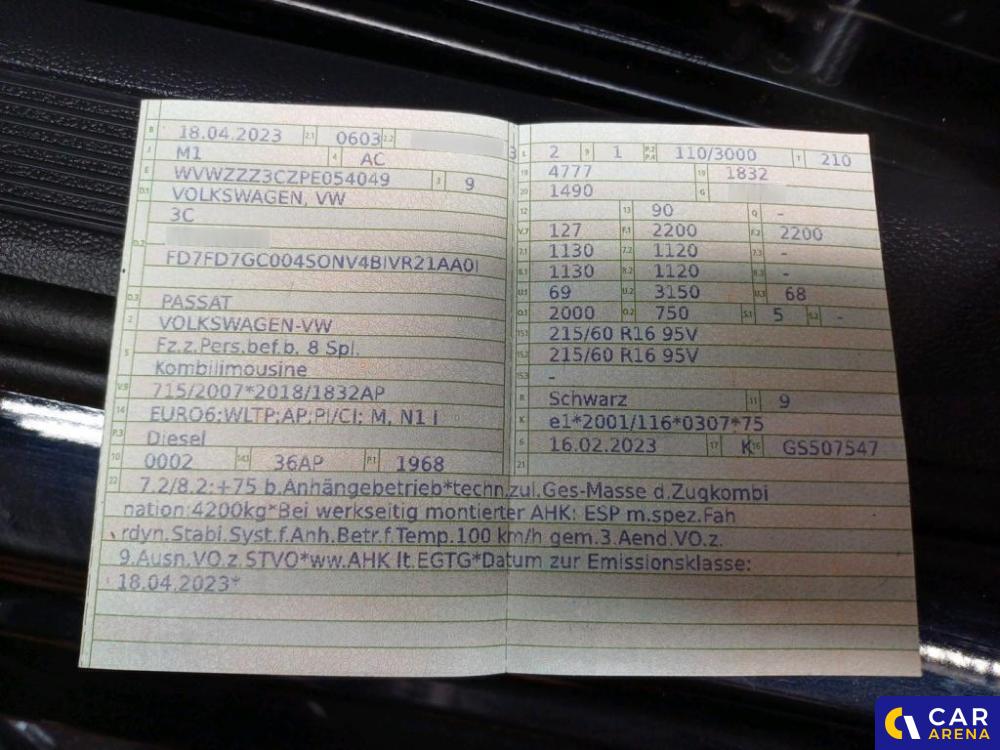 B 18.04.2023 2.1 0603 2.2
J M1 4 AC
E WVWZZZ3CZPE054049 3 9
D.1 VOLKSWAGEN, VW
3C
D.2
FD7FD7GC004SONV4BIVR21AA0I
D.3 PASSAT
2 VOLKSWAGEN-VW
5 Fz.z.Pers.bef.b. 8 Spl.
Kombilimousine
V.9 715/2007*2018/1832AP
14 EURO6;WLTP;AP;PI/CI; M, N1 I
P.3 Diesel
10 0002 14.1 36AP P.1 1968
L 2 9 1 P.2 P.4 110/3000 T 210
18 4777 19 1832
20 1490 G
12 13 90 Q -
V.7 127 F.1 2200 F.2 2200
7.1 1130 7.2 1120 7.3 -
8.1 1130 8.2 1120 8.3 -
U.1 69 U.2 3150 U.3 68
O.1 2000 O.2 750 S.1 5 S.2 -
15.1 215/60 R16 95V
15.2 215/60 R16 95V
15.3 -
R Schwarz 11 9
K e1*2001/116*0307*75
6 16.02.2023 17 K 16 GS507547
21
22 7.2/8.2:+75 b.Anhängebetrieb*techn.zul.Ges-Masse d.Zugkombi
nation:4200kg*Bei werkseitig montierter AHK: ESP m.spez.Fah
rdyn.Stabi.Syst.f.Anh.Betr.f.Temp.100 km/h gem.3.Aend.VO.z.
9.Ausn.VO.z.STVO*ww.AHK lt.EGTG*Datum zur Emissionsklasse:
18.04.2023*
CAR
ARENA